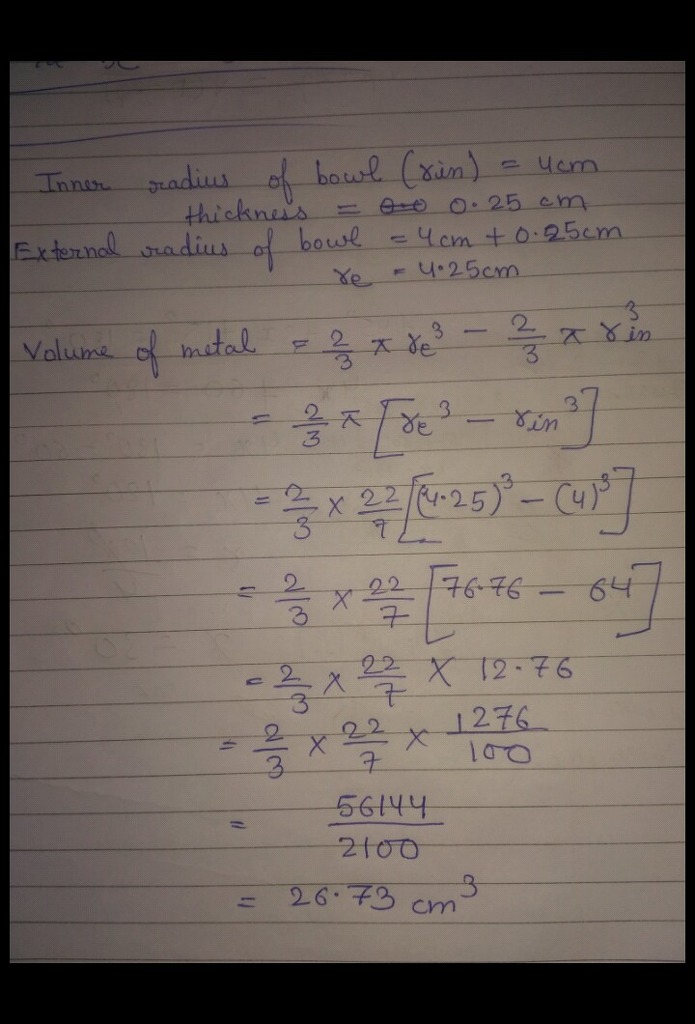 Inner radius of bowl (rin) = 4cm
thickness = 0.25 cm
External radius of bowl = 4cm + 0.25cm
re = 4.25cm
Volume of metal = 2/3 π re³ - 2/3 π rin³
= 2/3 π [re³ - rin³]
= 2/3 × 22/7 [(4.25)³ - (4)³]
= 2/3 × 22/7 [76.76 - 64]
= 2/3 × 22/7 × 12.76
= 2/3 × 22/7 × 1276/100
= 56144/2100
= 26.73 cm³